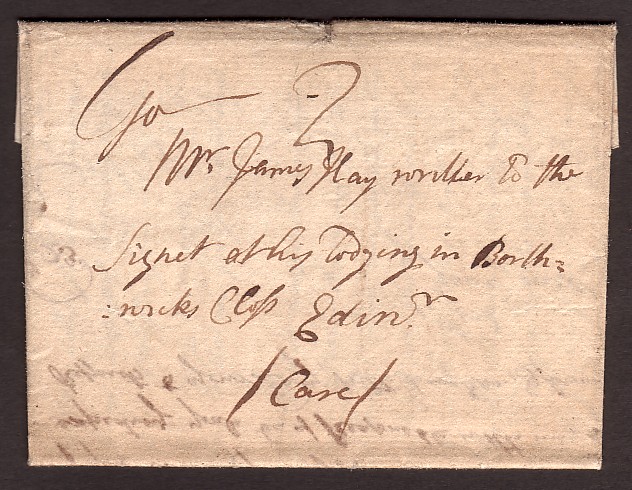 To 2
Mr. James Hay writter To the
Signet at his Lodging in Borth=
:wicks Closs Edinr.
/Care/